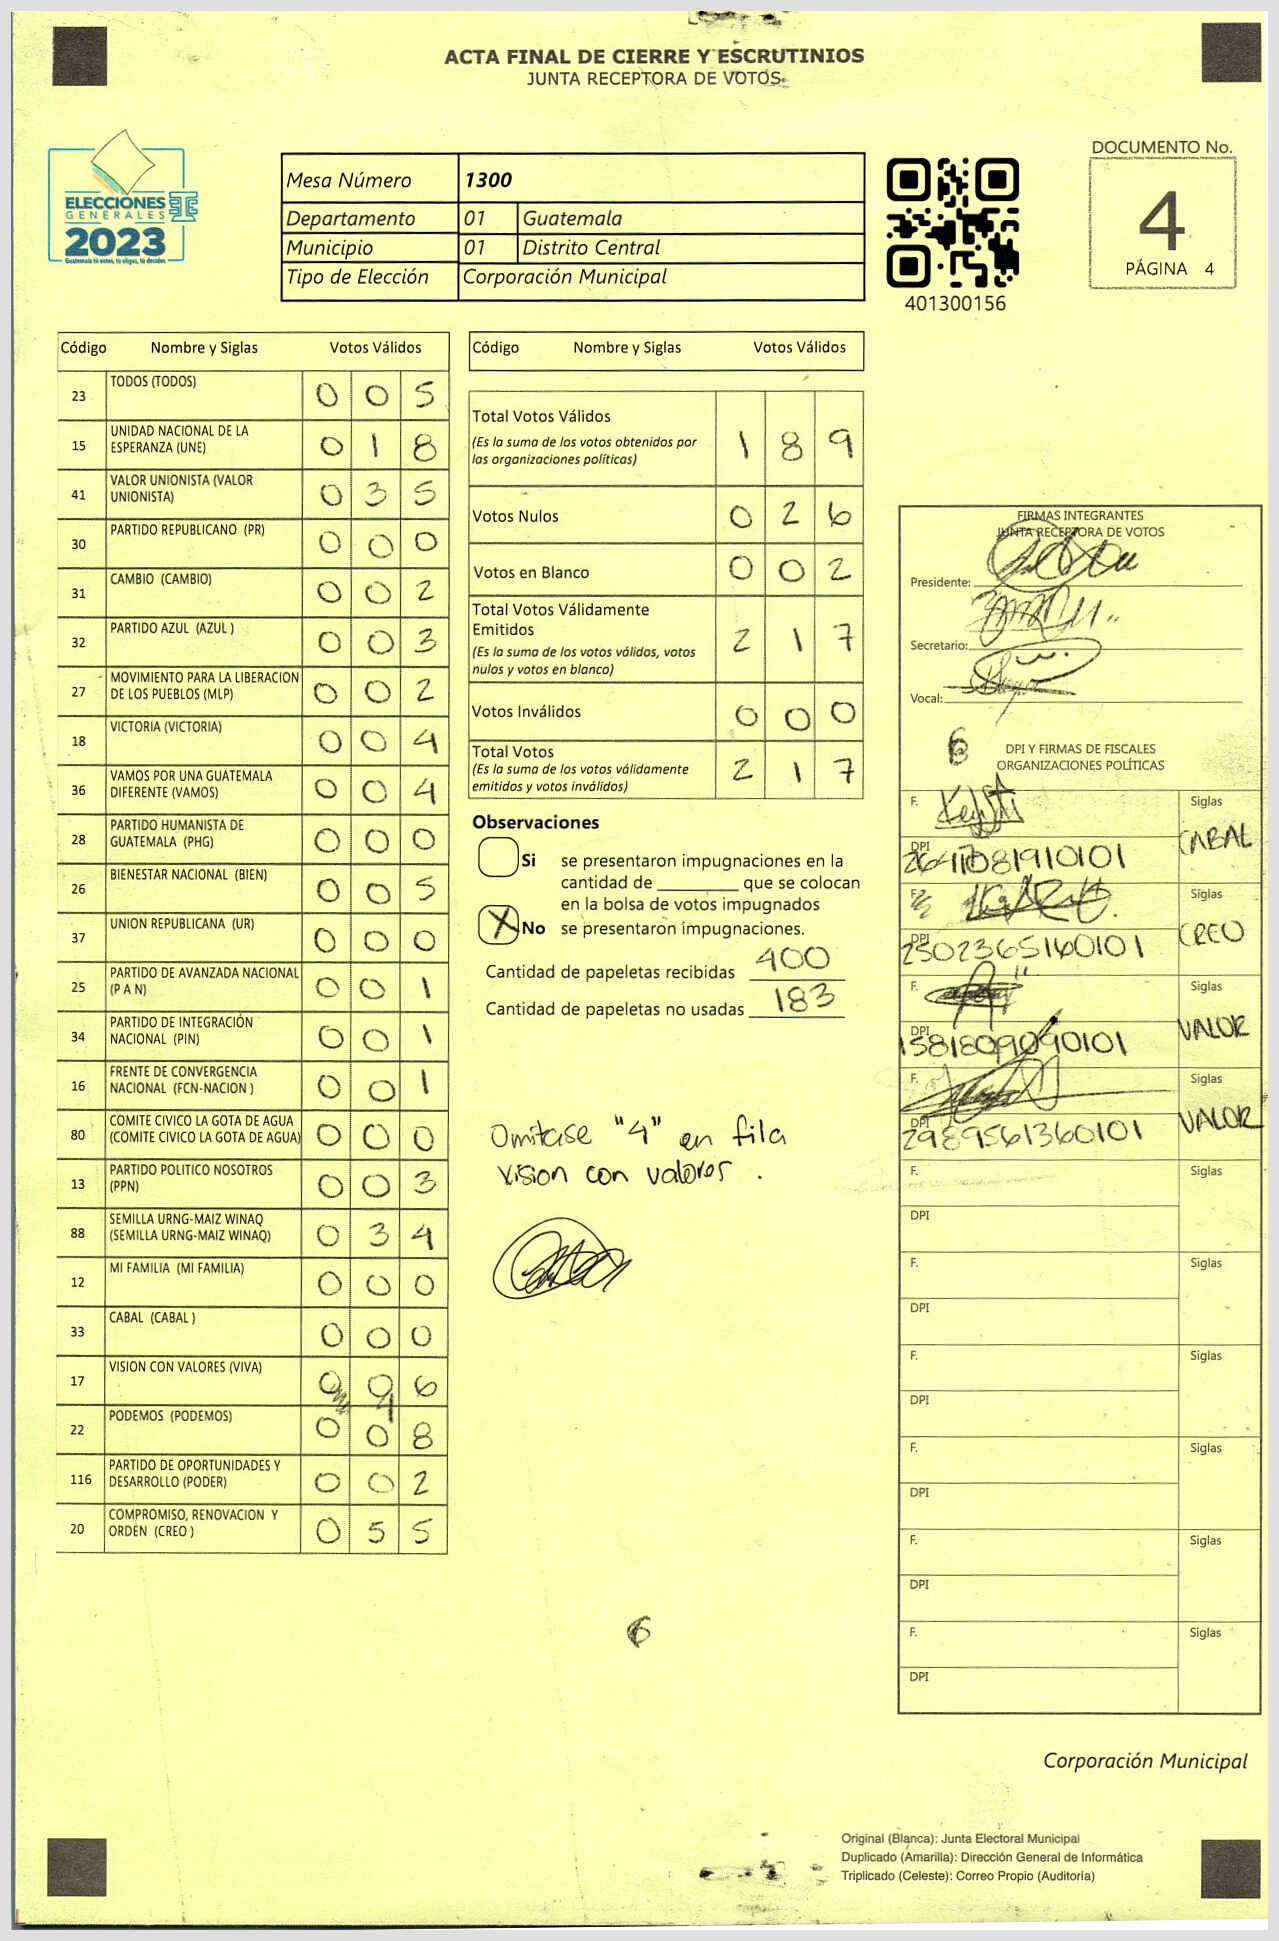 ACTA FINAL DE CIERRE Y ESCRUTINIOS
JUNTA RECEPTORA DE VOTOS
ELECCIONES
GENERALES
2023
Guatemala tú votas, tú eliges, tú decides
Mesa Número 1300
Departamento 01 Guatemala
Municipio 01 Distrito Central
Tipo de Elección Corporación Municipal
401300156
DOCUMENTO No.
4
PÁGINA 4
Código Nombre y Siglas Votos Válidos
23 TODOS (TODOS) 0 0 5
15 UNIDAD NACIONAL DE LA
ESPERANZA (UNE) 0 1 8
41 VALOR UNIONISTA (VALOR
UNIONISTA) 0 3 5
30 PARTIDO REPUBLICANO (PR) 0 0 0
31 CAMBIO (CAMBIO) 0 0 2
32 PARTIDO AZUL (AZUL ) 0 0 3
27 MOVIMIENTO PARA LA LIBERACION
DE LOS PUEBLOS (MLP) 0 0 2
18 VICTORIA (VICTORIA) 0 0 4
36 VAMOS POR UNA GUATEMALA
DIFERENTE (VAMOS) 0 0 4
28 PARTIDO HUMANISTA DE
GUATEMALA (PHG) 0 0 0
26 BIENESTAR NACIONAL (BIEN) 0 0 5
37 UNION REPUBLICANA (UR) 0 0 0
25 PARTIDO DE AVANZADA NACIONAL
(P A N) 0 0 1
34 PARTIDO DE INTEGRACIÓN
NACIONAL (PIN) 0 0 1
16 FRENTE DE CONVERGENCIA
NACIONAL (FCN-NACION ) 0 0 1
80 COMITE CIVICO LA GOTA DE AGUA
(COMITE CIVICO LA GOTA DE AGUA) 0 0 0
13 PARTIDO POLITICO NOSOTROS
(PPN) 0 0 3
88 SEMILLA URNG-MAIZ WINAQ
(SEMILLA URNG-MAIZ WINAQ) 0 3 4
12 MI FAMILIA (MI FAMILIA) 0 0 0
33 CABAL (CABAL ) 0 0 0
17 VISION CON VALORES (VIVA) 0 0 6
4
22 PODEMOS (PODEMOS) 0 0 8
116 PARTIDO DE OPORTUNIDADES Y
DESARROLLO (PODER) 0 0 2
20 COMPROMISO, RENOVACION Y
ORDEN (CREO ) 0 5 5
Código Nombre y Siglas Votos Válidos
Total Votos Válidos 1 8 9
(Es la suma de los votos obtenidos por
las organizaciones políticas)
Votos Nulos 0 2 6
Votos en Blanco 0 0 2
Total Votos Válidamente
Emitidos 2 1 7
(Es la suma de los votos válidos, votos
nulos y votos en blanco)
Votos Inválidos 0 0 0
Total Votos 2 1 7
(Es la suma de los votos válidamente
emitidos y votos inválidos)
Observaciones
Si se presentaron impugnaciones en la
cantidad de ________ que se colocan
en la bolsa de votos impugnados
X No se presentaron impugnaciones.
Cantidad de papeletas recibidas 400
Cantidad de papeletas no usadas 183
Omitase "4" en fila
vision con valores .
6
FIRMAS INTEGRANTES
JUNTA RECEPTORA DE VOTOS
Presidente:
Secretario:
Vocal:
6
DPI Y FIRMAS DE FISCALES
ORGANIZACIONES POLÍTICAS
F. Siglas
DPI CABAL
F. Siglas
DPI 2502365160101 CREO
F. Siglas
DPI 1581809090101 VALOR
F. Siglas
DPI 2989561360101 VALOR
F. Siglas
DPI
F. Siglas
DPI
F. Siglas
DPI
F. Siglas
DPI
F. Siglas
DPI
F. Siglas
DPI
Corporación Municipal
Original (Blanca): Junta Electoral Municipal
Duplicado (Amarilla): Dirección General de Informática
Triplicado (Celeste): Correo Propio (Auditoría)